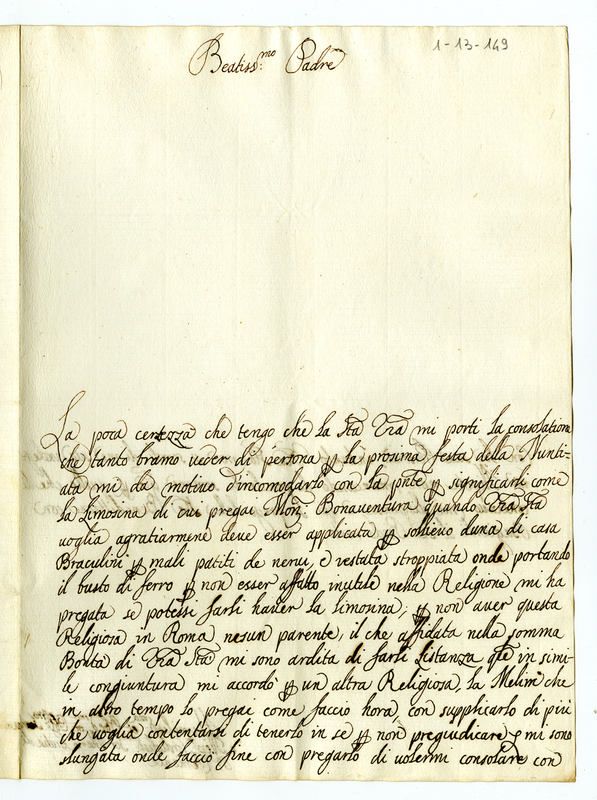 1-13-149
Beatiss:mo Padre
La poca certezza che tengo che la Stà Vrà mi porti la consolatione
che tanto bramo veder di persona p la prosima festa della Nunti-
ata mi da motivo d'incomodarlo con la pnte p significarli come
la limosina di cui pregai Monz: Bonaventura quando Vrà Stà
voglia agratiarmene deve esser applicata p sollievo duna di casa
Braculini p mali patiti de nervi, e restata stroppiata onde portando
il busto di ferro p non esser affatto inutile nella Religione mi ha
pregata se potessi farli haver la limosina, p non aver questa
Religiosa in Roma nesun parente, il che affidata nella somma
Bontà di Vrà Stà mi sono ardita di farli listanza che in simi-
le congiuntura mi accordò p un altra Religiosa, la Melini che
in altro tempo lo pregai come faccio hora, con supplicarlo di più
che voglia contentarsi di tenerlo in se p non pregiudicare e mi sono
slungata onde faccio fine con pregarlo di volermi consolare con